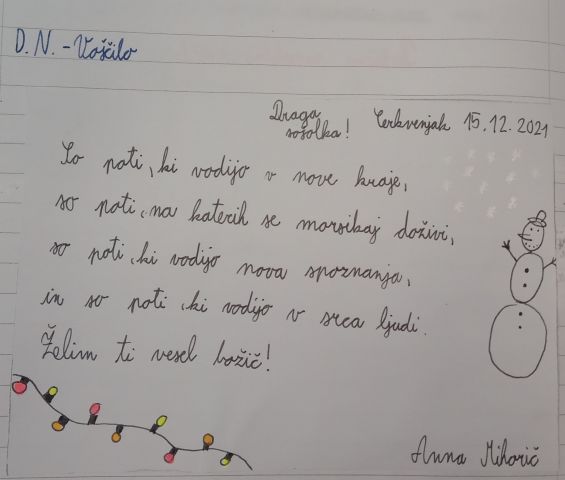 D. N. - Voščilo
Draga sošolka!
Cerkvenjak 15.12.2021
So poti, ki vodijo v nove kraje,
so poti, na katerih se marsikaj doživi,
so poti, ki vodijo nova spoznanja,
in so poti, ki vodijo v srca ljudi.
Želim ti vesel božič!
Anna Mihorič